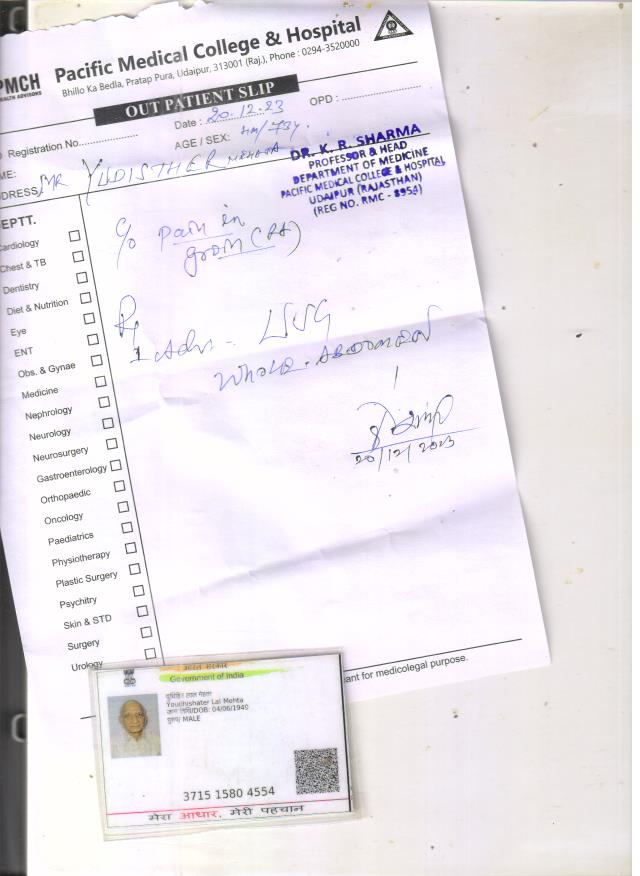 PMCH
HEALTH ADVISORS
Pacific Medical College & Hospital
Bhillo Ka Bedla, Pratap Pura, Udaipur, 313001 (Raj.), Phone : 0294-3520000
OUT PATIENT SLIP
Registration No.
Date : 20.12.23
OPD :
AGE / SEX:
MR YUDISTHER MEHTA
DR. K. R. SHARMA
PROFESSOR & HEAD
DEPARTMENT OF MEDICINE
PACIFIC MEDICAL COLLEGE & HOSPITAL
UDAIPUR (RAJASTHAN)
(REG NO. RMC - 8954)
c/o pain in
groin
Adv. USG
WHOLE ABDOMEN
20/12/2023
DEPTT.
Cardiology
Chest & TB
Dentistry
Diet & Nutrition
Eye
ENT
Obs. & Gynae
Medicine
Nephrology
Neurology
Neurosurgery
Gastroenterology
Orthopaedic
Oncology
Paediatrics
Physiotherapy
Plastic Surgery
Psychitry
Skin & STD
Surgery
Urology
ant for medicolegal purpose.
भारत सरकार
Government of India
युधिष्ठिर लाल मेहता
Youdhishater Lal Mehta
जन्म तिथि/DOB: 04/06/1940
पुरुष/ MALE
3715 1580 4554
मेरा आधार, मेरी पहचान